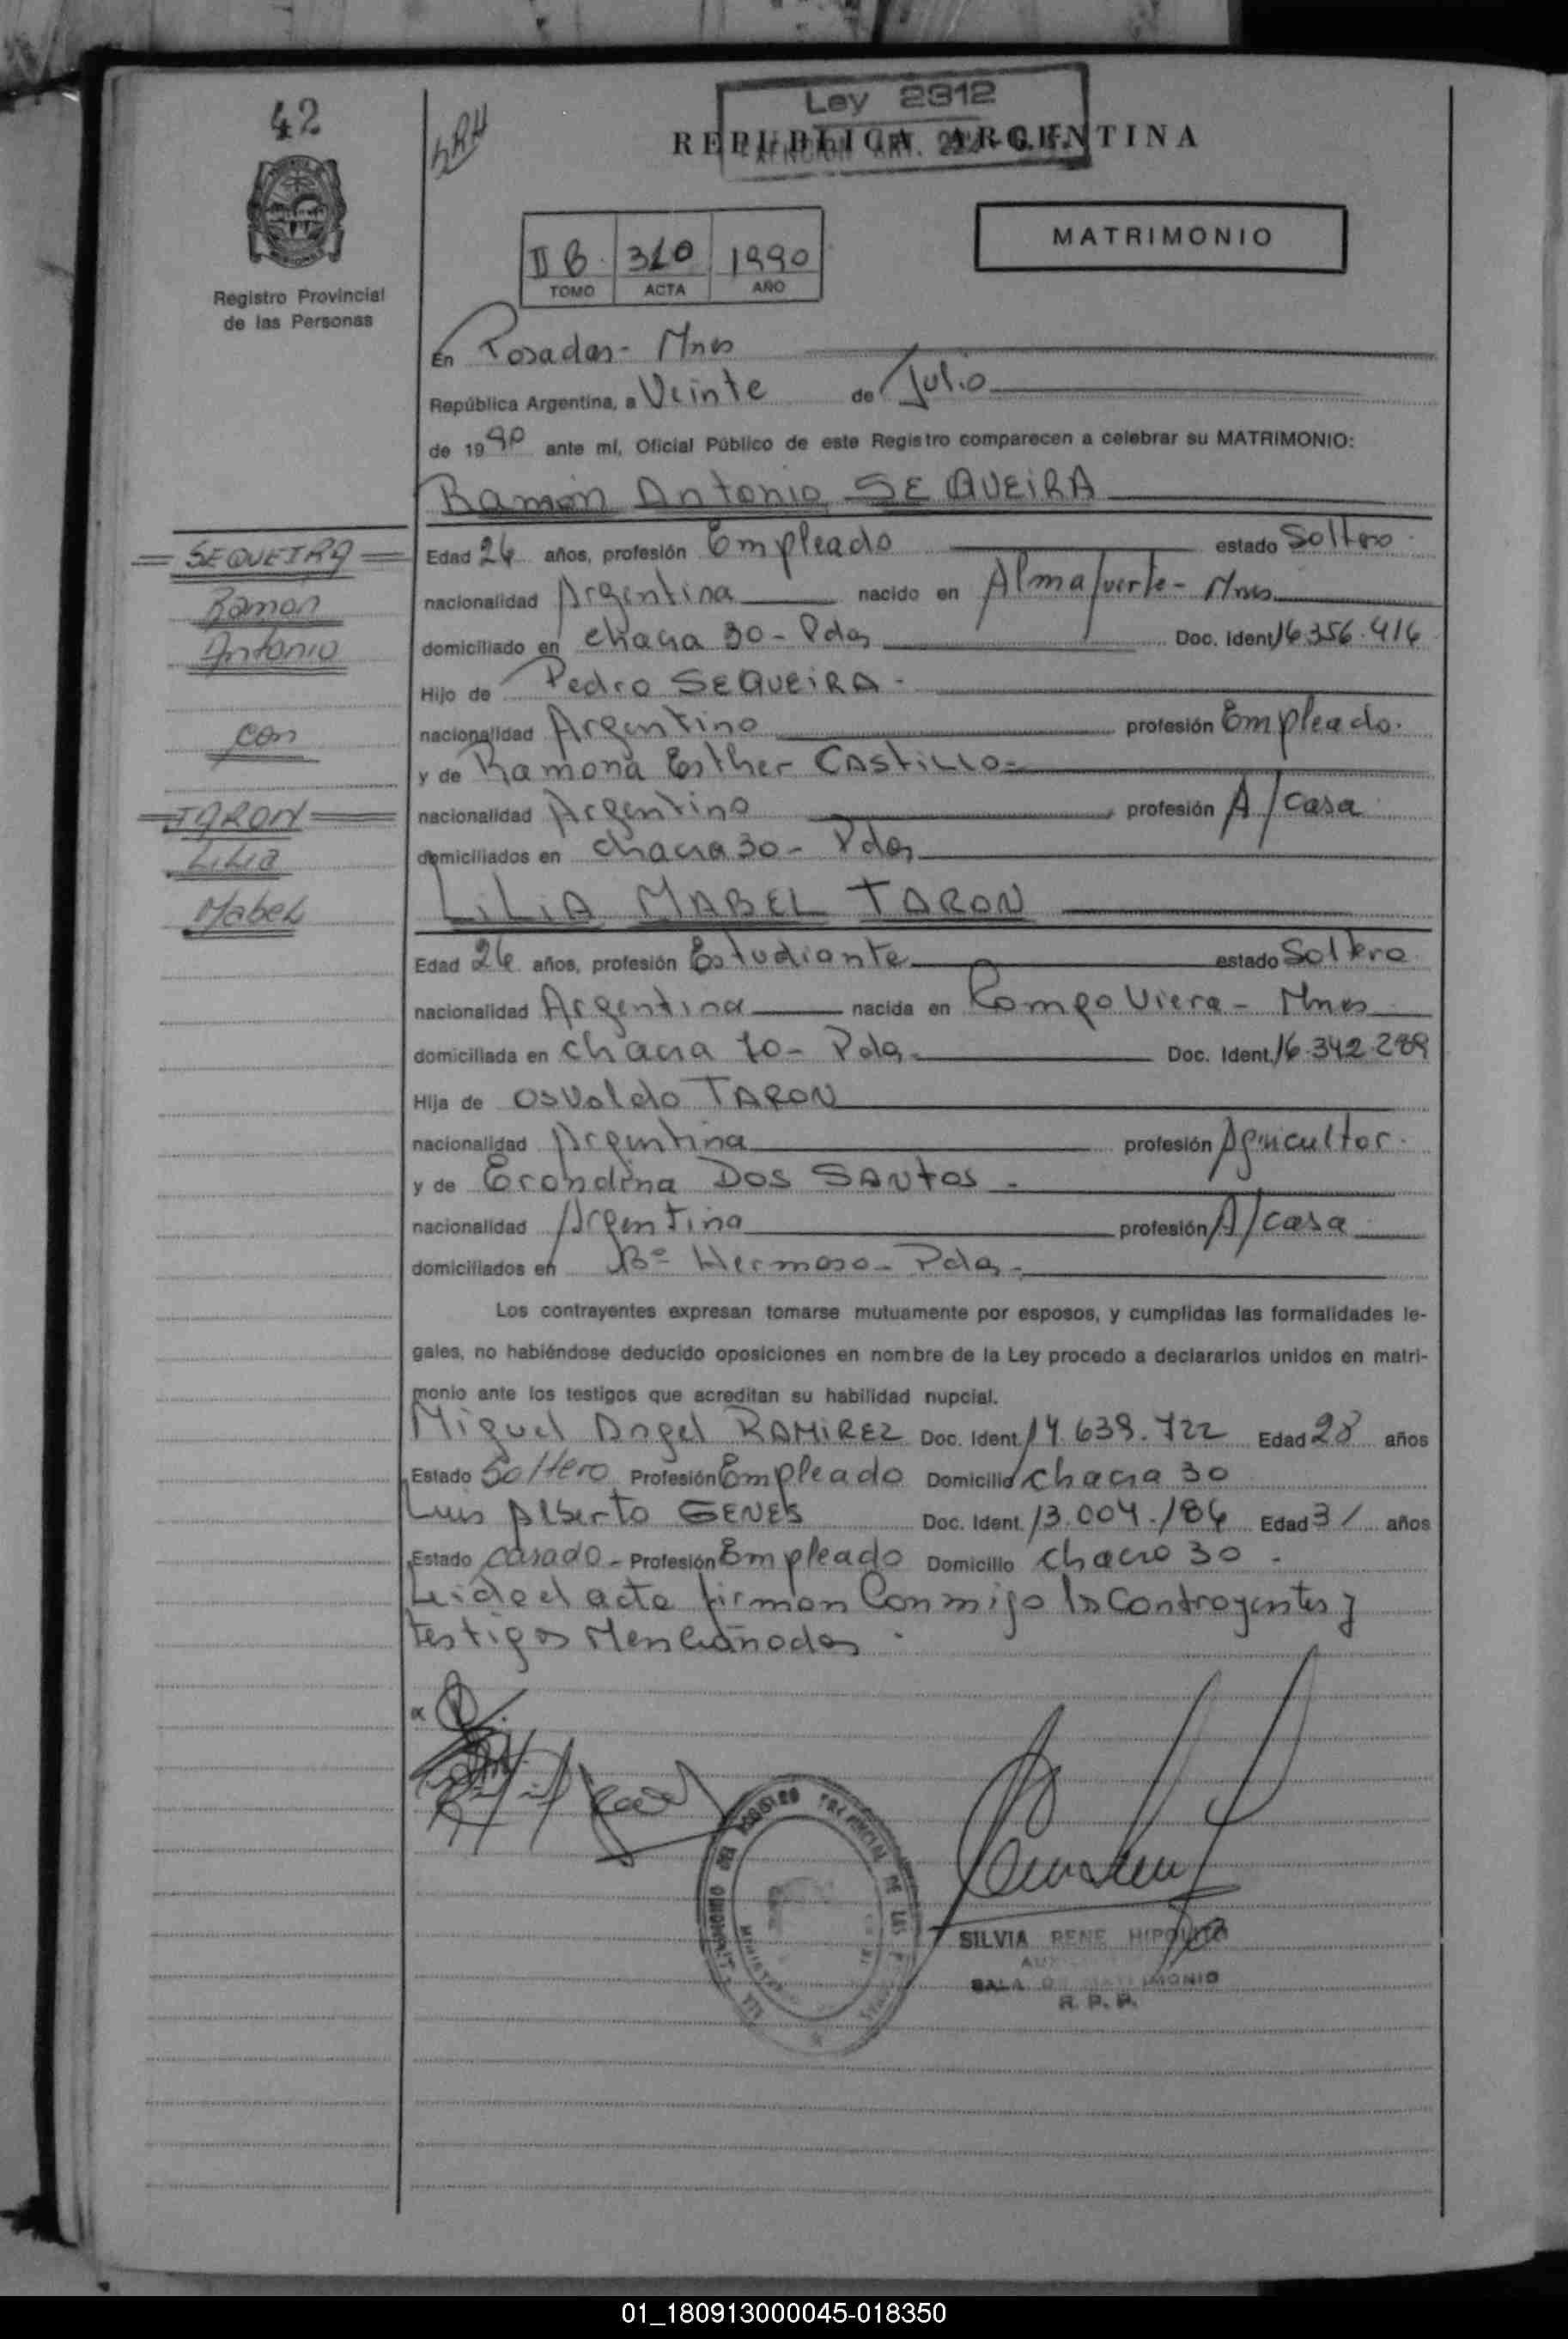 42
Ley 2312
REPUBLICA ARGENTINA
MATRIMONIO
II B. 310 1990
TOMO ACTA AÑO
Registro Provincial
de las Personas
En Posadas - Mnes
República Argentina, a Veinte de Julio
de 1990 ante mí, Oficial Público de este Registro comparecen a celebrar su MATRIMONIO:
Ramón Antonio SEQUEIRA
SEQUEIRA
Ramon
Antonio
con
TARON
Lilia
Mabel
Edad 26 años, profesión Empleado estado Soltero
nacionalidad Argentina nacido en Almafuerte - Mnes
domiciliado en chacra 30 - Pdas Doc. Ident. 16.356.416
Hijo de Pedro SEQUEIRA -
nacionalidad Argentino profesión Empleado.
y de Ramona Esther CASTILLO -
nacionalidad Argentino profesión A/casa
domiciliados en chacra 30 - Pdas
LILIA MABEL TARON
Edad 26 años, profesión Estudiante estado Soltera
nacionalidad Argentina nacida en Campo Viera - Mnes
domiciliada en chacra 70 - Pdas. Doc. Ident. 16.342.289
Hija de Osvaldo TARON
nacionalidad Argentina profesión Agricultor.
y de Erondina DOS SANTOS -
nacionalidad Argentina profesión A/casa
domiciliados en Bº Hermoso - Pdas -
Los contrayentes expresan tomarse mutuamente por esposos, y cumplidas las formalidades le-
gales, no habiéndose deducido oposiciones en nombre de la Ley procedo a declararlos unidos en matri-
monio ante los testigos que acreditan su habilidad nupcial.
Miguel Angel RAMIREZ Doc. Ident. 14.639.722 Edad 28 años
Estado Soltero Profesión Empleado Domicilio chacra 30
Luis Alberto GENES Doc. Ident. 13.004.186 Edad 31 años
Estado casado - Profesión Empleado Domicilio chacra 30 -
Leida el acta firman conmigo los contrayentes y
testigos Mencionados.
SILVIA RENE HIPOLITO
SALA DE MATRIMONIO
R. P. P.
01_180913000045-018350